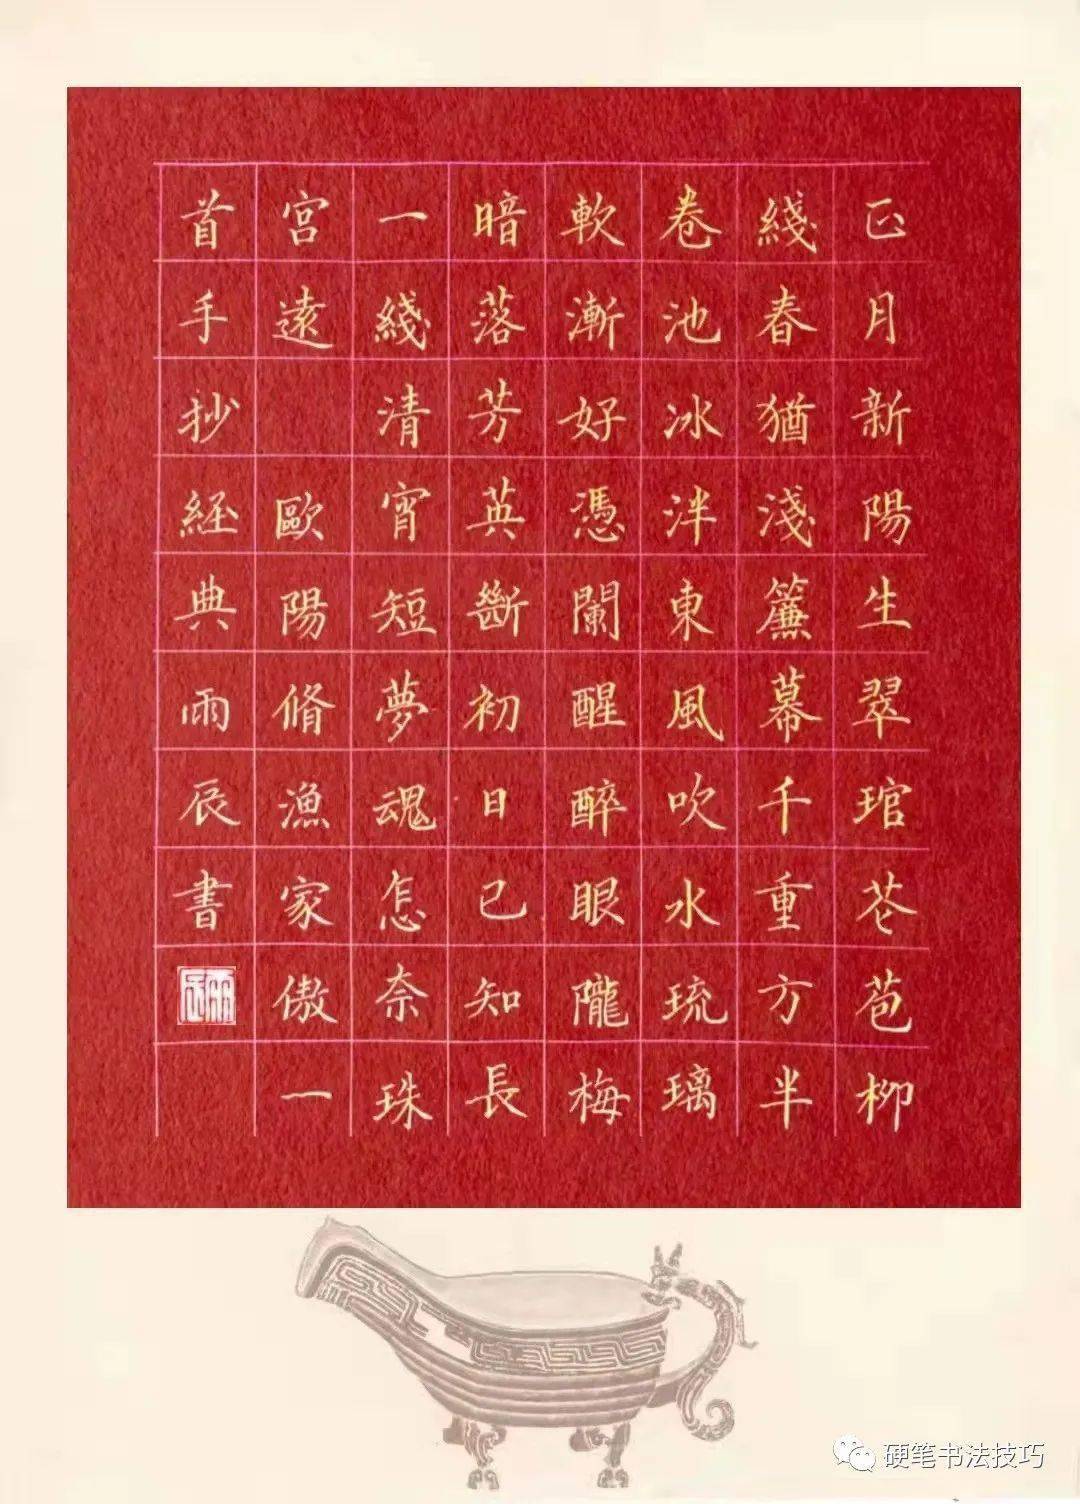 正月新陽生翠琯花苞柳
綫春猶淺簾幕千重方半
卷池冰泮東風吹水琉璃
軟漸好憑闌醒醉眼隴梅
暗落芳英斷初日已知長
一綫清宵短夢魂怎奈珠
宮遠 歐陽脩漁家傲一
首手抄經典雨辰書
雨辰
硬笔书法技巧